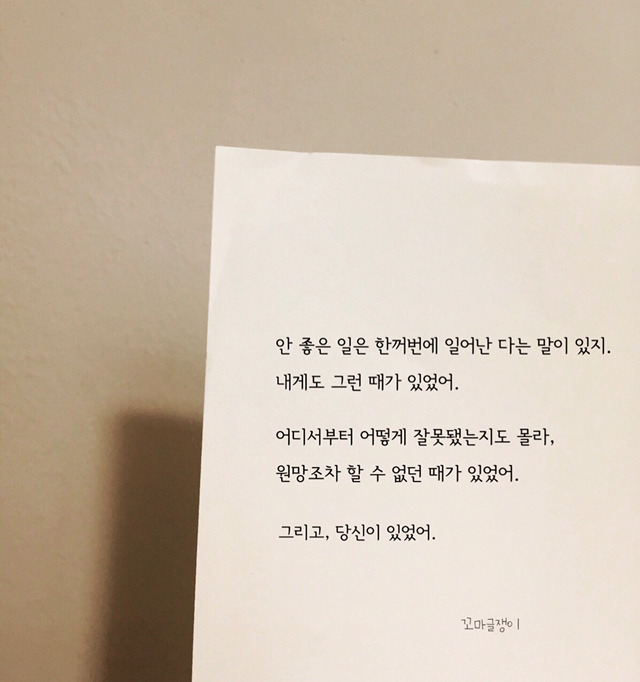 안 좋은 일은 한꺼번에 일어난 다는 말이 있지.
내게도 그런 때가 있었어.
어디서부터 어떻게 잘못됐는지도 몰라,
원망조차 할 수 없던 때가 있었어.
그리고, 당신이 있었어.
꼬마글쟁이